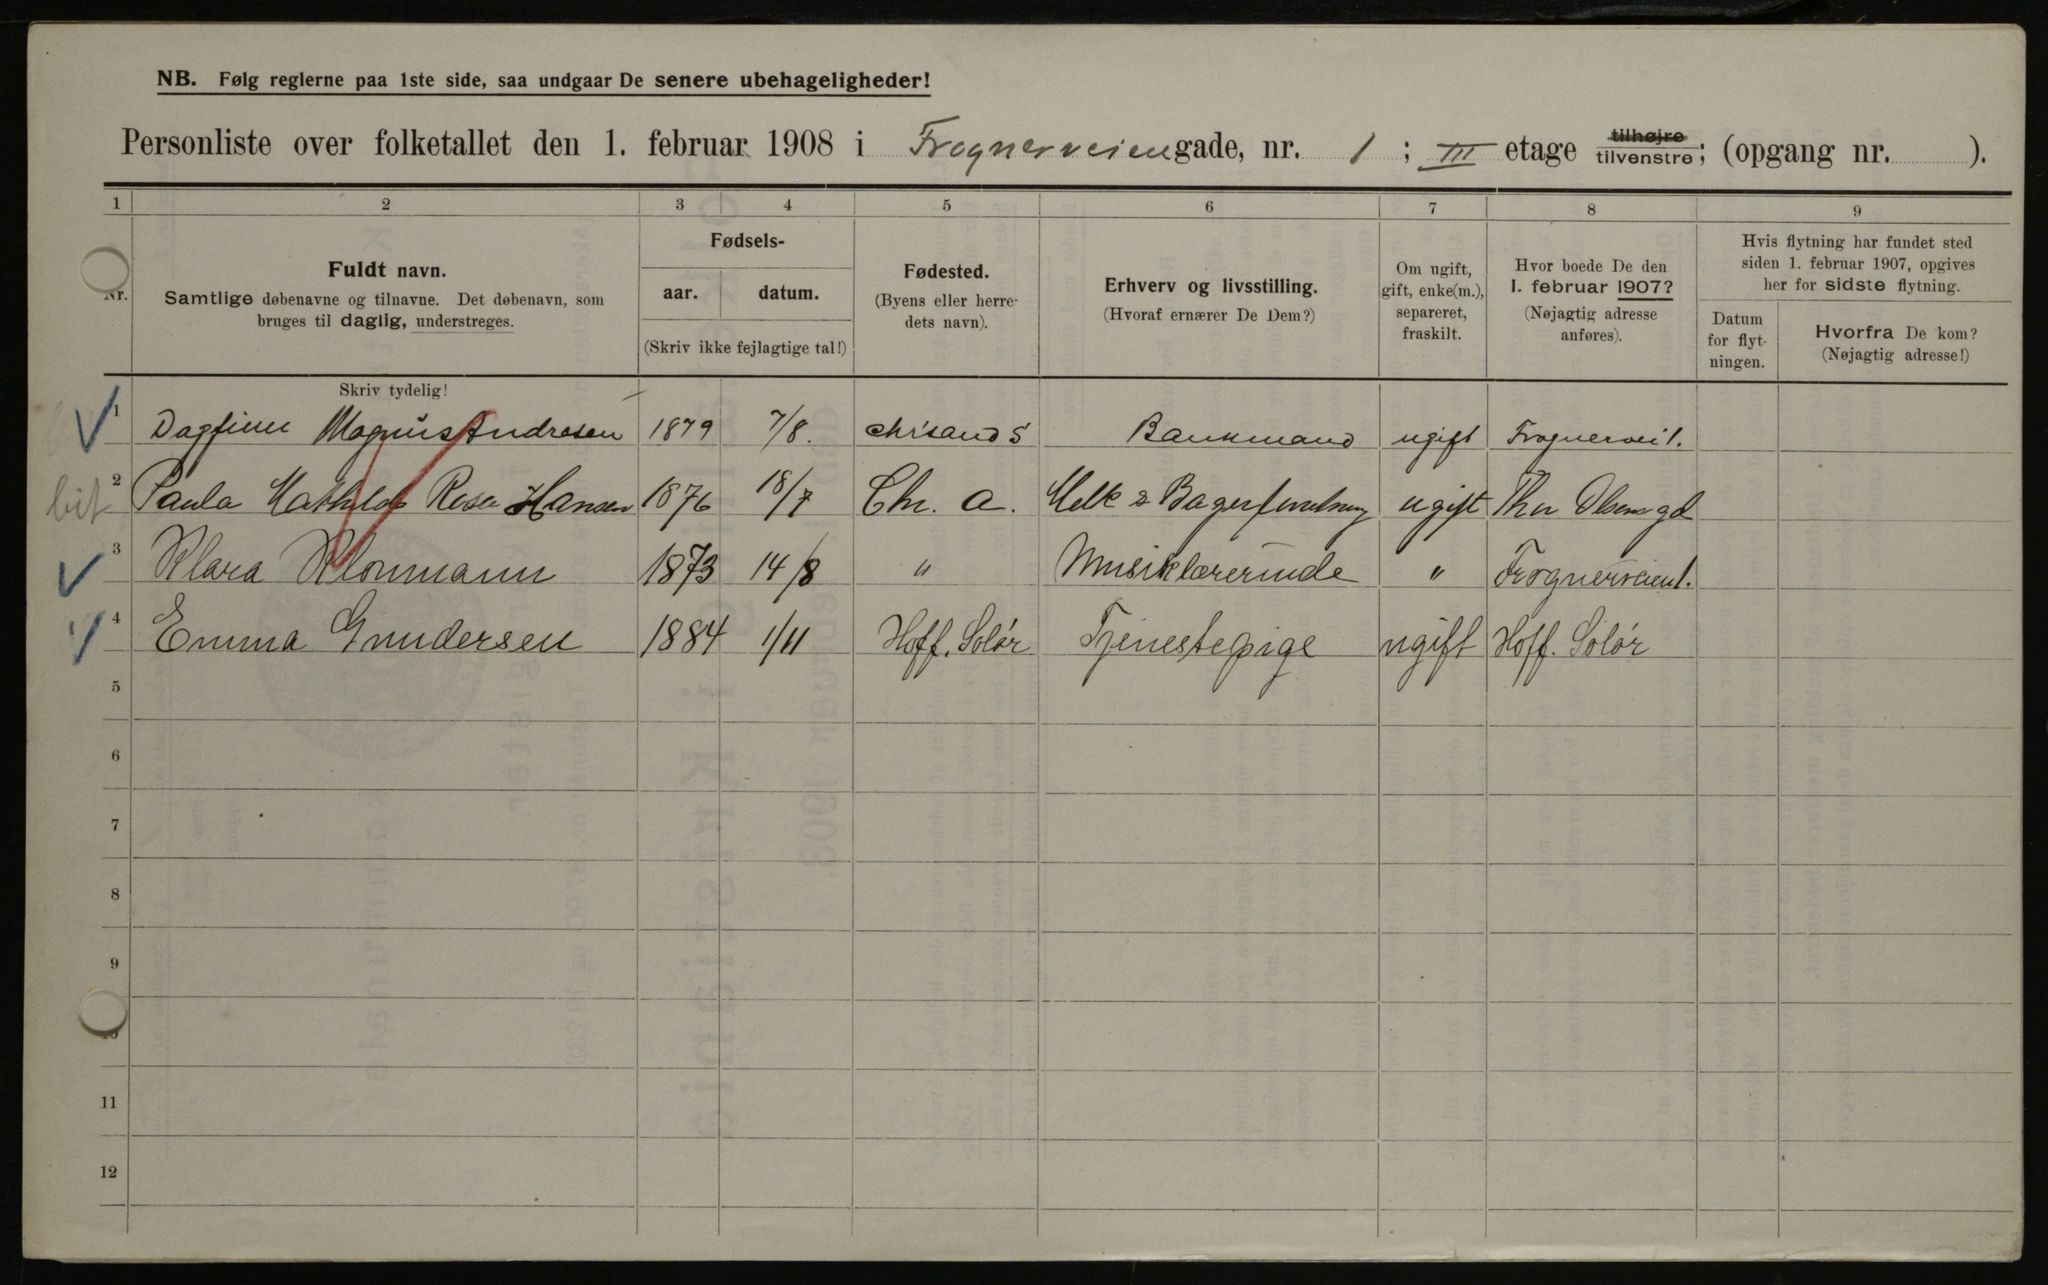 NB. Følg reglerne paa 1ste side, saa undgaar De senere ubehageligheder!
Personliste over folketallet den 1. februar 1908 i Frognerveien gade, nr. 1; III etage tilhøjre tilvenstre; (opgang nr. ).
1 2 3 4 5 6 7 8 9
Nr.
Fuldt navn.
Samtlige døbenavne og tilnavne. Det døbenavn, som
bruges til daglig, understreges.
Fødsels-
aar. datum.
(Skriv ikke fejlagtige tal!)
Fødested.
(Byens eller herre-
dets navn).
Erhverv og livsstilling.
(Hvoraf ernærer De Dem?)
Om ugift,
gift, enke(m.),
separeret,
fraskilt.
Hvor boede De den
1. februar 1907?
(Nøjagtig adresse
anføres).
Hvis flytning har fundet sted
siden 1. februar 1907, opgives
her for sidste flytning.
Datum
for flyt-
ningen.
Hvorfra De kom?
(Nøjagtig adresse!)
Skriv tydelig!
1 Dagfinn Magnus Andresen 1879 7/8. chrsand S Bankmand ugift Frognervei 1.
bit 2 Paula Mathilde Rosa Hansen 1876 18/7 Chr. a. Melk & Bagerforretning ugift Thor Olsens gd
3 Klara Klonmann 1873 14/8 " Musiklærerinde " Frognerveien 1.
4 Emma Gundersen 1884 1/11 Hoff. Solør Tjenestepige ugift Hoff. Solør
5
6
7
8
9
10
11
12